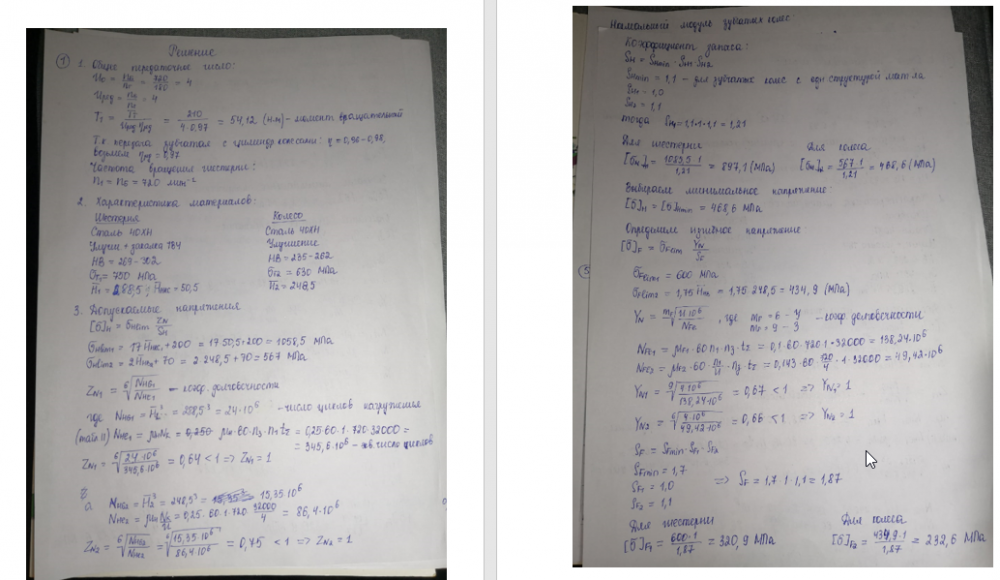 Решение
① 1. Общее передаточное число:
U₀ = nₙ/nₜ = 720/180 = 4
Uред = = 4
T₁ = / Uред·ηред = 210 / 4·0,97 = 54,12 (Н.м) - момент вращательный
Т.к передача зубчатая с цилиндр колесами: η = 0,96-0,98,
возьмем = 0,97
Частота вращения шестерни:
n₁ = = 720 мин⁻¹
2. Характеристика материалов:
Шестерня Колесо
Сталь 40ХН Сталь 40ХН
Улучш + закалка ТВЧ Улучшение
HB = 269-302 HB = 235-262
σт₁ = 750 МПа σт2 = 630 МПа
H̄₁ = 288,5; = 50,5 H̄₂ = 248,5
3. Допускаемые напряжения
[σ]н = σнlim Zɴ/Sн
σнlim1 = 17H̄ +200 = 17·50,5+200 = 1058,5 МПа
σнlim2 = 2H̄ +70 = 2·248,5+70 = 567 МПа
Zɴ₁ = ⁶√(Nнɢ₁/Nнᴇ₁) - коэф. долговечности
где Nнɢ₁ = H̄ ³ = 288,5³ = 24·10⁶ - число циклов нагружения
Nнᴇ₁ = = ·60·n₃·n₁ = 0,25·60·1·720·32000 =
= 345,6·10⁶ - число циклов
Zɴ₁ = ⁶√(24·10⁶/345,6·10⁶) = 0,64 < 1 => Zɴ₁ = 1
Nнɢ₂ = H̄₂³ = 248,5³ = 15,35·10⁶
Nнᴇ₂ = = 0,25·60·1·720· 32000/4 = 86,4·10⁶
Zɴ₂ = ⁶√(Nнɢ₂/Nнᴇ₂) = ⁶√(15,35·10⁶/86,4·10⁶) = 0,75 < 1 => Zɴ₂ = 1
модуль зубчатых колес
Коэффициент запаса:
Sн = Sнmin · Sн1 · Sн2
Sнmin = 1,1 - для зубчатых колес с одн структурой мат-ла
Sн1 = 1,0
Sн2 = 1,1
тогда Sн = 1,1·1·1,1 = 1,21
Для шестерни Для колеса
= 1·/1,21 = 897,1 (МПа) = 567·1/1,21 = 468,6 (МПа)
Выбираем минимальное напряжение:
[σ]н = [σ]нmin = 468,6 МПа
Определяем изгибное напряжение
[σ]ꜰ = σꜰlim Yɴ/Sꜰ
⑤
σꜰlim1 = 600 МПа
σꜰlim2 = 1,75 H̄ = 1,75·248,5 = 434,9 (МПа)
Yɴ = √(4·10⁶/Nꜰᴇ), где mꜰ = 6 - Y
mꜰ = 9 - 3 - коэф долговечности
Nꜰᴇ₁ = μꜰ₁·60·n₁·n₃·t = 0,1·60·720·1·32000 = 138,24·10⁶
Nꜰᴇ₂ = μꜰ₂·60· n₁/U ·n₃·t = 0,143·60· 720/4 ·1·32000 = 49,42·10⁶
Yɴ₁ = ⁹√(4·10⁶/138,24·10⁶) = 0,67 < 1 => Yɴ₁ = 1
Yɴ₂ = ⁶√(4·10⁶/49,42·10⁶) = 0,66 < 1 => Yɴ₂ = 1
Sꜰ = Sꜰmin · Sꜰ1 · Sꜰ2
Sꜰmin = 1,7
Sꜰ1 = 1,0 => Sꜰ = 1,7·1·1,1 = 1,87
Sꜰ2 = 1,1
Для шестерни Для колеса
[σ]ꜰ1 = 600·1/1,87 = 320,9 МПа [σ]ꜰ2 = 434,9·1/1,87 = 232,6 МПа